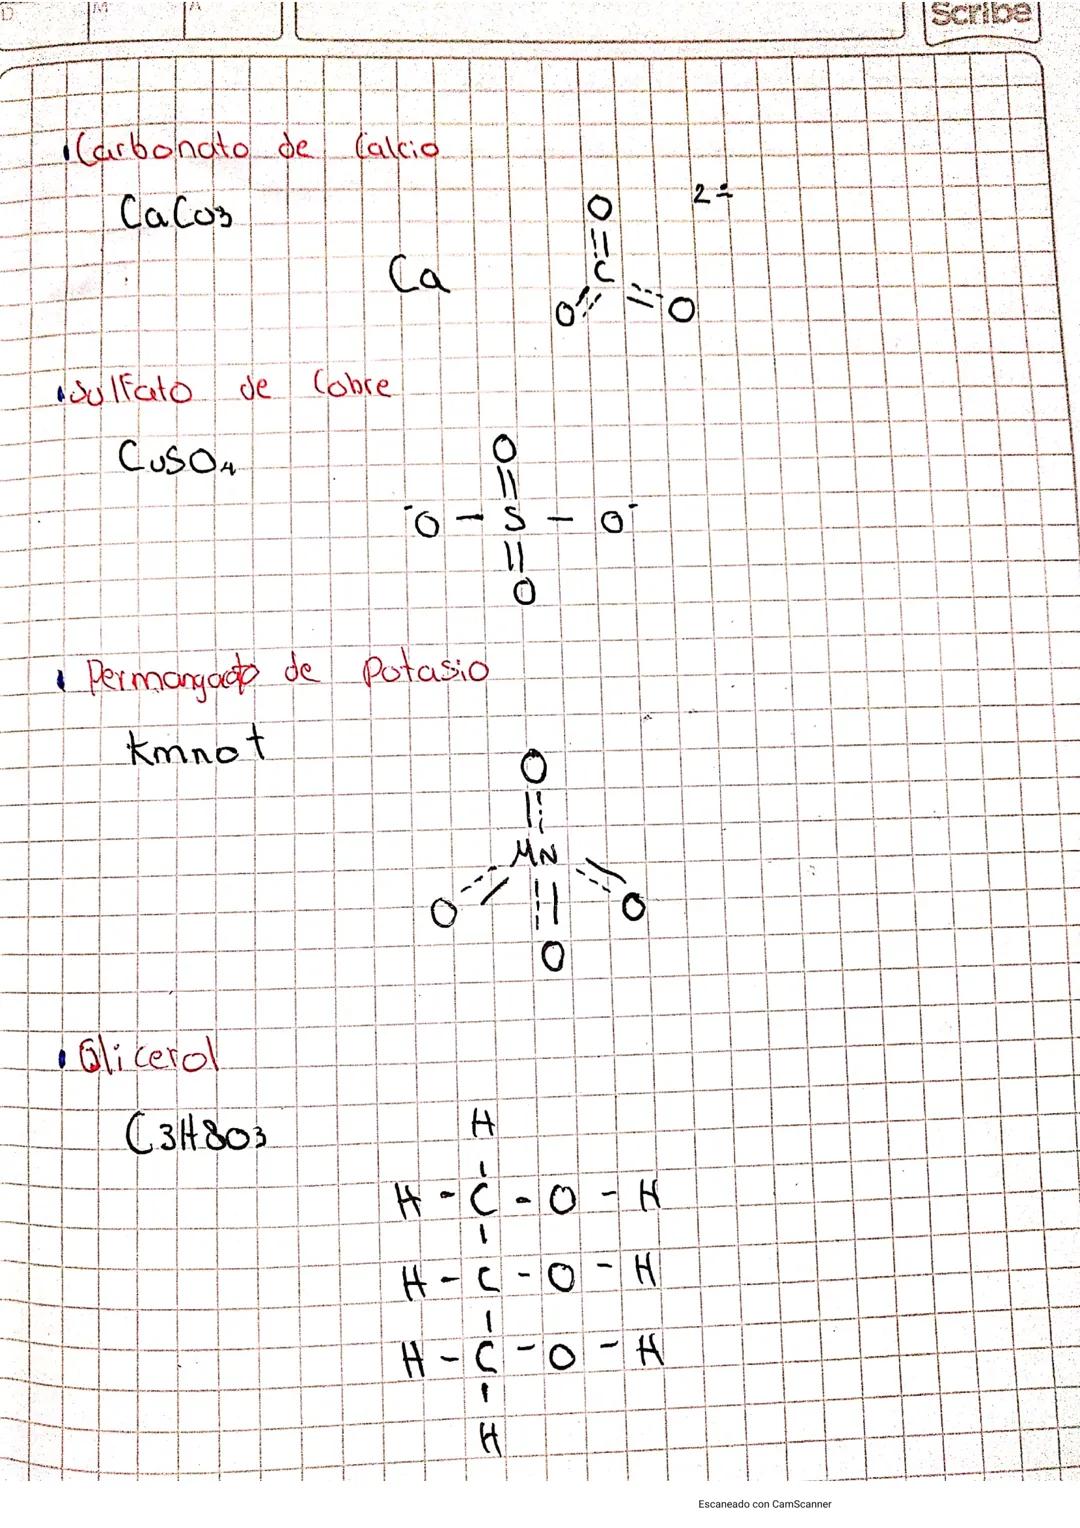 D M A Scribe
Carbonato de Calcio
CaCo3
2-
O
||
Ca C
O O
Sulfato de Cobre
CuSO4
O
||
-O - S - O-
||
O
Permangato de Potasio
kmnot
O
||
MN
O O
O
Glicerol
C3H8O3
H
|
H - C - O - H
|
H - C - O - H
|
H - C - O - H
|
H
Escaneado con CamScanner